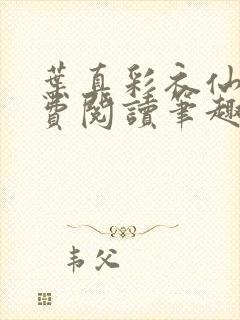 葉真彩衣仙
費閱讀筆趣
韦父